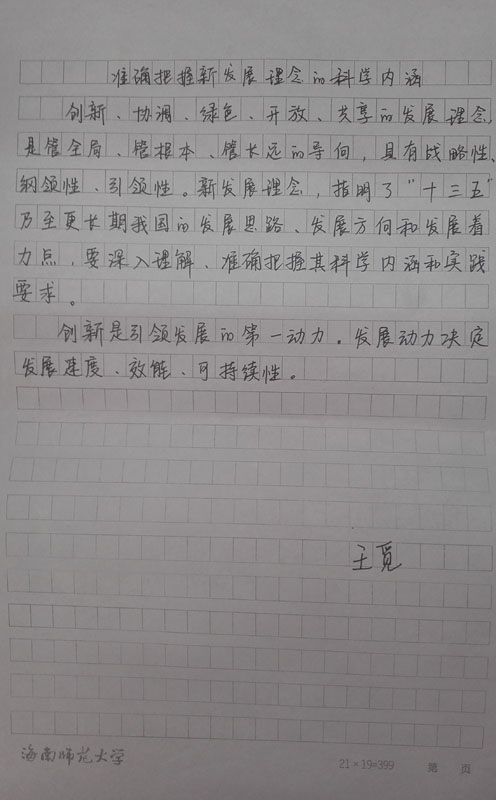 准确把握新发展理念的科学内涵
创新、协调、绿色、开放、共享的发展理念，
是管全局、管根本、管长远的导向，具有战略性、
纲领性、引领性。新发展理念，指明了“十三五”
乃至更长期我国的发展思路、发展方向和发展着
力点，要深入理解、准确把握其科学内涵和实践
要求。
创新是引领发展的第一动力。发展动力决定
发展速度、效能、可持续性。
王觅
海南师范大学 21×19=399 第 页